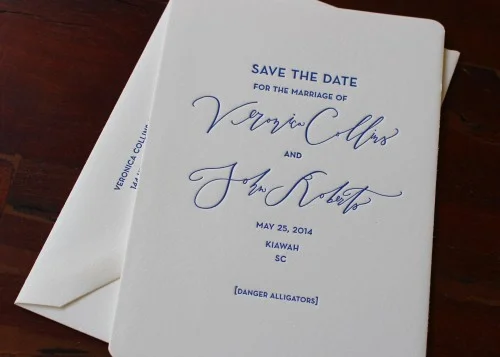 SAVE THE DATE
FOR THE MARRIAGE OF
Veronica Collins
AND
John Roberts
MAY 25, 2014
KIAWAH
SC
[DANGER ALLIGATORS]
VERONICA COLLINS